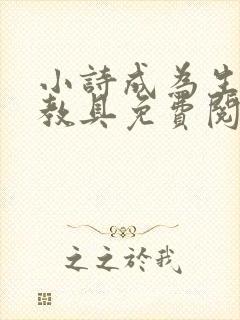 小詩成為生
教具免費閱
之之於我